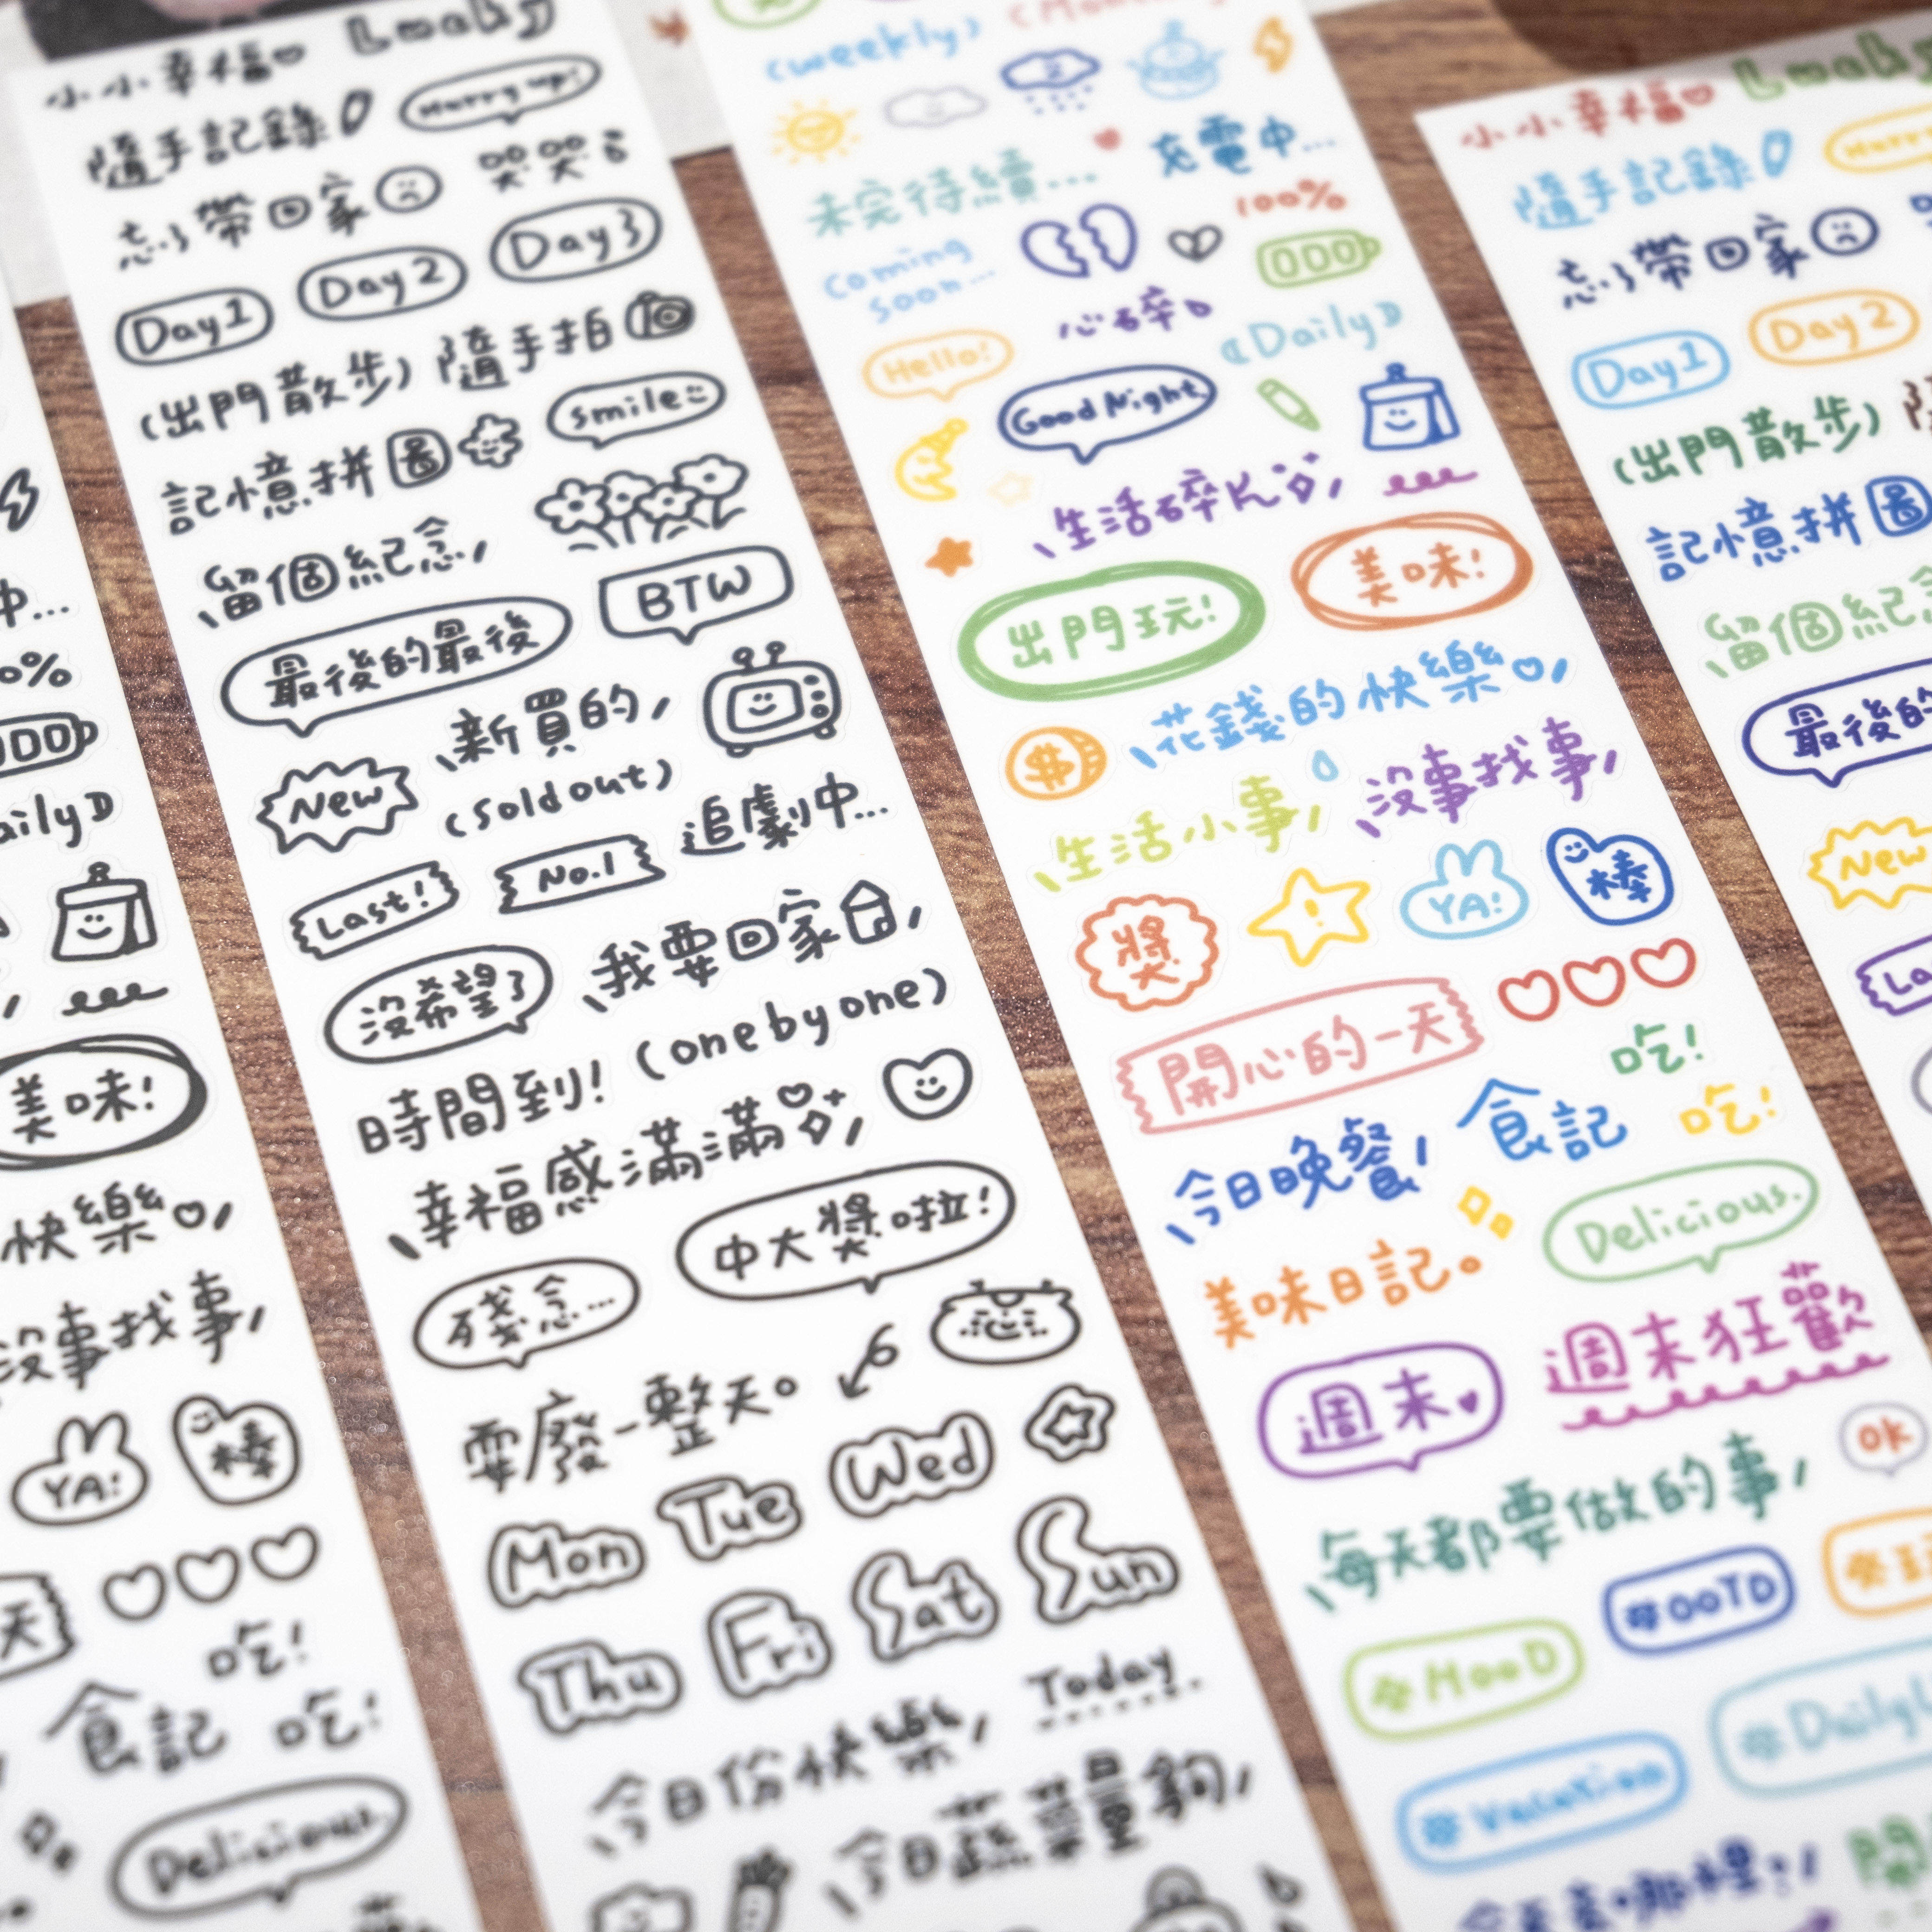 中...
0%
aily
美味!
快樂
沒事找事
YA!
棒
天
吃!
食記 吃!
Delicious.
小小幸福 Lucky
隨手記錄 Hurry up!
忘了帶回家 哭哭
Day1 Day2 Day3
(出門散步) 隨手拍
記憶拼圖 smile
留個紀念
最後的最後 BTW
New 新買的
(sold out) 追劇中...
Last! No.1
沒希望了 我要回家
時間到! (one by one)
幸福感滿滿
殘念... 中大獎啦!
耍廢一整天。
Mon Tue Wed
Thu Fri Sat Sun
今日份快樂 Today
今日蔬菜量夠
(weekly)
未完待續... 充電中...
Coming soon... 100%
心碎
Hello! (Daily)
Good Night
生活碎片
出門玩! 美味!
$ 花錢的快樂
生活小事 沒事找事
獎 ! YA! 棒
開心的一天
吃!
今日晚餐 食記 吃!
美味日記。 Delicious.
週末 週末狂歡
每天都要做的事 OK
#MOOD #OOTD
#Vacation #Daily
小小幸福 Lucky
隨手記錄 Hurry
忘了帶回家
Day1 Day2
(出門散步)
記憶拼圖
留個紀念
最後的
New
La